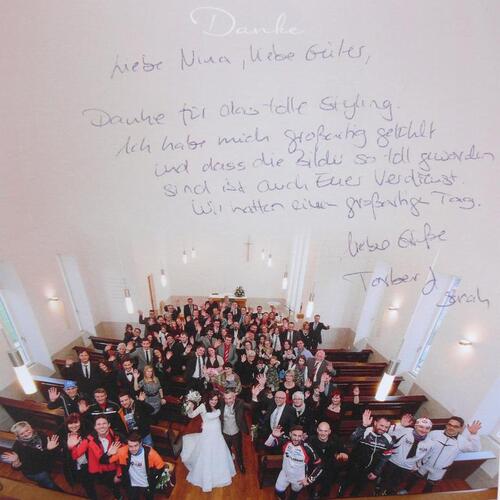 Danke
Liebe Nina, liebe Günter,
Danke für das tolle Styling.
Ich habe mich großartig gefühlt
und dass die Bilder so toll geworden
sind ist auch Euer Verdienst.
Wir hatten einen großartigen Tag.
Liebe Grüße